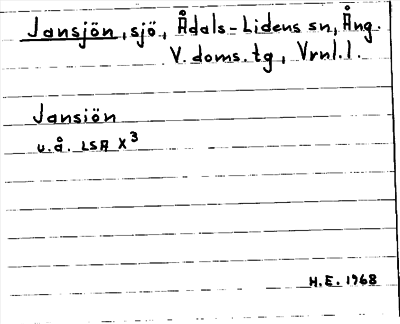 Jansjön, sjö, Ådals-Lidens sn, Ång.
V. doms. tg, Vrnl. l.
Jansiön
u.å. LSA X3
H.E. 1968